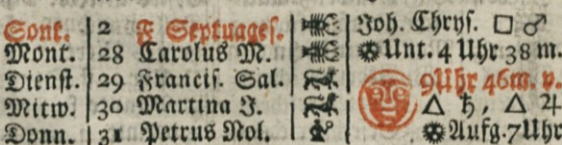 Sont. 2 F Septuages. Joh. Chrys. □ ♂
Mont. 28 Carolus M. Unt. 4 Uhr 38 m.
Dienst. 29 Francis. Sal. 9Uhr 46m. v.
Mitw. 30 Martina J. △ ♄, △ ♃
Donn. 31 Petrus Nol. Aufg. 7Uhr